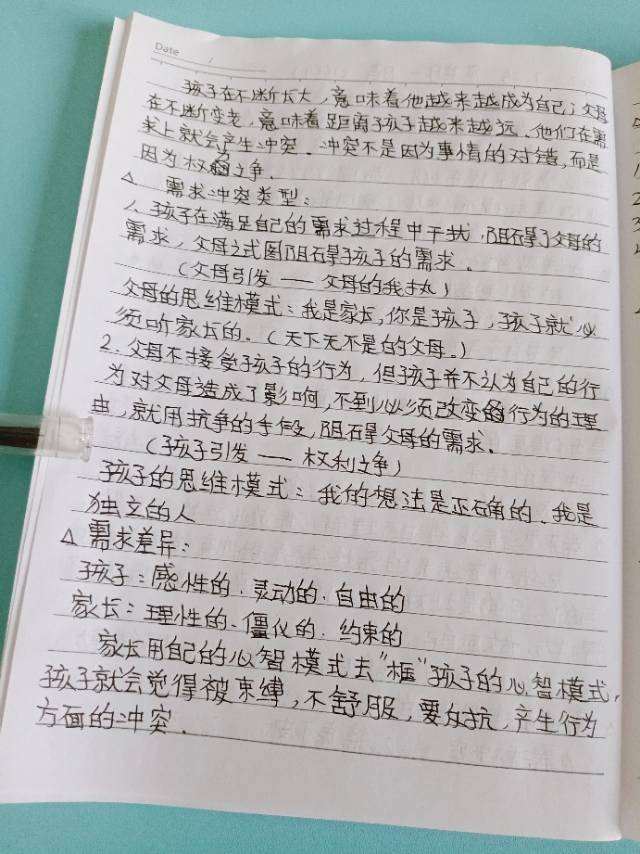 Date
孩子在不断长大，意味着他越来越成为自己；父母
在不断变老，意味着距离孩子越来越远。他们在需
求上就会产生冲突。冲突不是因为事情的对错，而是
因为权力之争。
△ 需求冲突类型：
1. 孩子在满足自己的需求过程中干扰、阻碍了父母的
需求，父母之式图阻碍孩子的需求。
（父母引发 —— 父母的我执）
父母的思维模式：我是家长，你是孩子，孩子就必
须听家长的。（天下无不是的父母。）
2. 父母不接受孩子的行为，但孩子并不认为自己的行
为对父母造成了影响，不到必须改变的行为的理
由，就用抗争的手段，阻碍父母的需求。
（孩子引发 —— 权利之争）
孩子的思维模式：我的想法是正确的、我是
独立的人
△ 需求差异：
孩子：感性的、灵动的、自由的
家长：理性的、僵化的、约束的
家长用自己的心智模式去“框”孩子的心智模式，
孩子就会觉得被束缚，不舒服，要反抗，产生行为
方面的冲突。